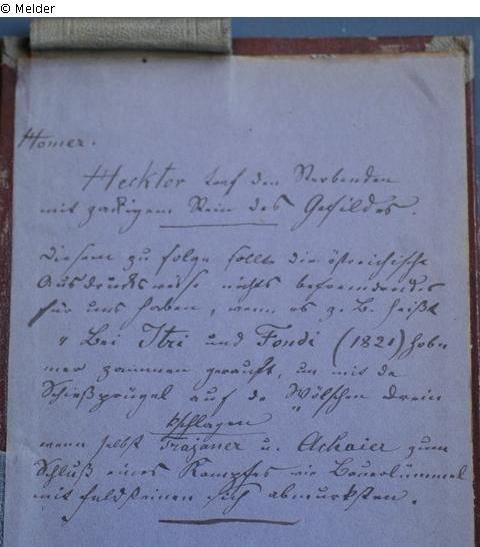 © Melder
Homer.
Hecktor traf den Sterbenden
mit zackigem Stein des Gefildes.
Diesem zu folge sollte die östreichische
Ausdrucksweise nichts befremdendes
für uns haben, wenn es z. B. heißt
" Bei Itri und Fondi (1821) hobn
mer zammen gerauft, un mit de
Schießprügel auf de Wölschen drein
gschlagen
wenn selbst Trojaner u. Achaier zum
Schluß eines Kampfes wie Bauerlümmel
mit Feldsteinen sich abmurksten.